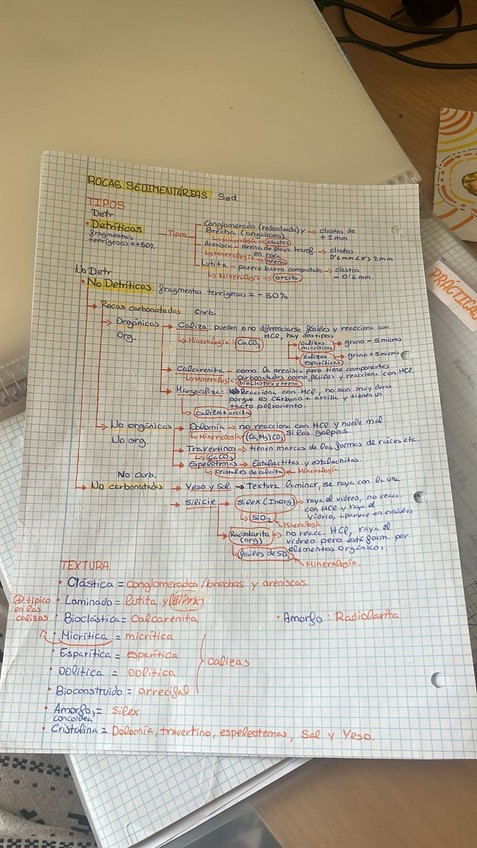 ROCAS SEDIMENTARIAS Sed
TIPOS
Detr
• Detríticas
fragmentos
terrígenos = +50%
Tipos
Conglomerado (redondeada) y → clastos de
Brecha (angulosa) + 2mm
↳ Mineralogía → clastos
Arenisca → arena de playa transf. → clastos
en roca 0'6mm < X > 2mm
↳ Mineralogía → arena
Lutita → parece barro compactado → clastos
↳ Mineralogía → arcilla - 0'6mm.
No Detr
• No Detríticas fragmentos terrígenos = -50%
→ Rocas carbonatadas carb.
→ Orgánicas → Caliza: pueden o no diferenciarse fósiles y reacciona con
Org. HCl, hay dos tipos
↳ Mineralogía CaCO3
calizas micríticas → grano - 5 micras
calizas esparíticas → grano + 5 micras
→ Calcarenita → como la arenisca pero tiene componentes
carbonatados como fósiles y reacciona con HCl.
↳ Mineralogía
→ Margocaliza: Reacciona con HCl, no son muy duras
porque es carbono + arcilla y tienen un
tacto polvoriento.
caliza + arcilla
→ No orgánicas → Dolomía → no reacciona con HCl y huele mal
No org si las golpeas.
↳ Mineralogía (Ca,Mg)CO3
→ Travertinos → tienen marcas de las formas de raíces etc.
↳ CaCO3
→ Espelotemas → Estalactitas y estalacmitas.
↳ cristales de calcita → Mineralogía
No Carb.
→ No carbonatadas → Yeso y Sal → Textura laminar, se raya con la uña
→ Silicie → Silex (Inorg) → raya el vidreo, no reacc.
con HCl y raya el
vidrio, aparece en nódulos
↳ SiO2 → Mineralogía
Radiolarita (org) → no reacc. HCl, raya el
vidreo pero está form. por
elementos orgánicos,
fósiles de SiO2 → Mineralogía
TEXTURA
• Clástica = conglomerados/brechas y areniscas.
• Laminado = lutita y
⊕ típico en las calizas.
• Bioclástica = Calcarenita
• Amorfo: Radiolarita
• Micrítica = micrítica
• Esparítica = esparítica
• oolítica = oolítica
• Bioconstruido = arrecifal
calizas
• Amorfo, = Silex
concoidea
• Cristalina = Dolomía, travertino, espelestemas, Sal y Yeso.
PRÁCTICAS